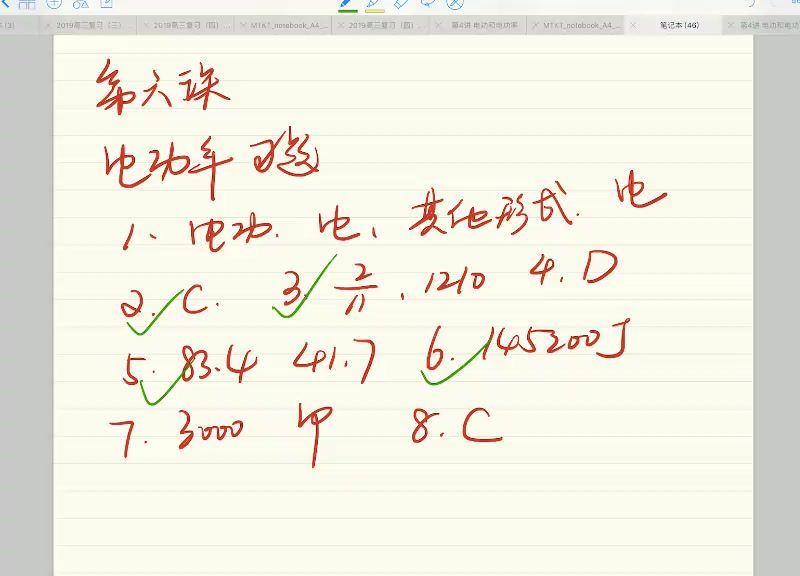 2019高三复习（三）...
2019高三复习（四）...
MTKT_notebook_A4_...
2019高三复习（四）...
第4讲 电功和电功率
MTKT_notebook_A4_...
笔记本 (46)
第4讲 电功和电功
第六课
电功率
1、电功. 电、其他形式. 电
2. C. 3. 2/11 、1210 4. D
5. 83.4 41.7 6. 145200J
7. 3000 甲 8. C